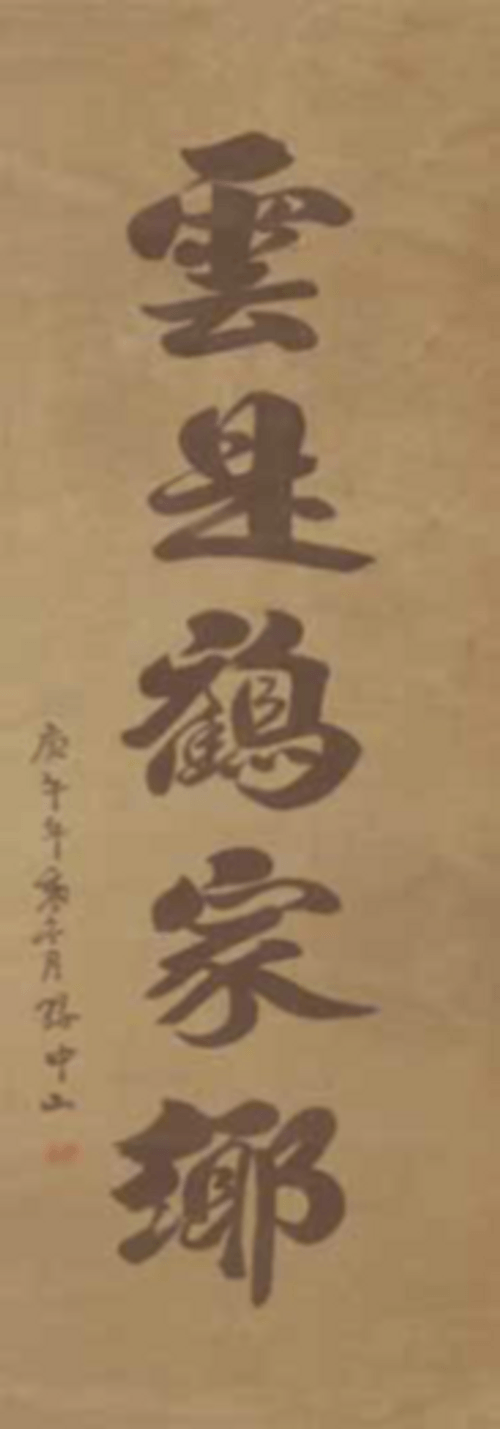 雲是鶴家鄉
庚午年季三月孫中山